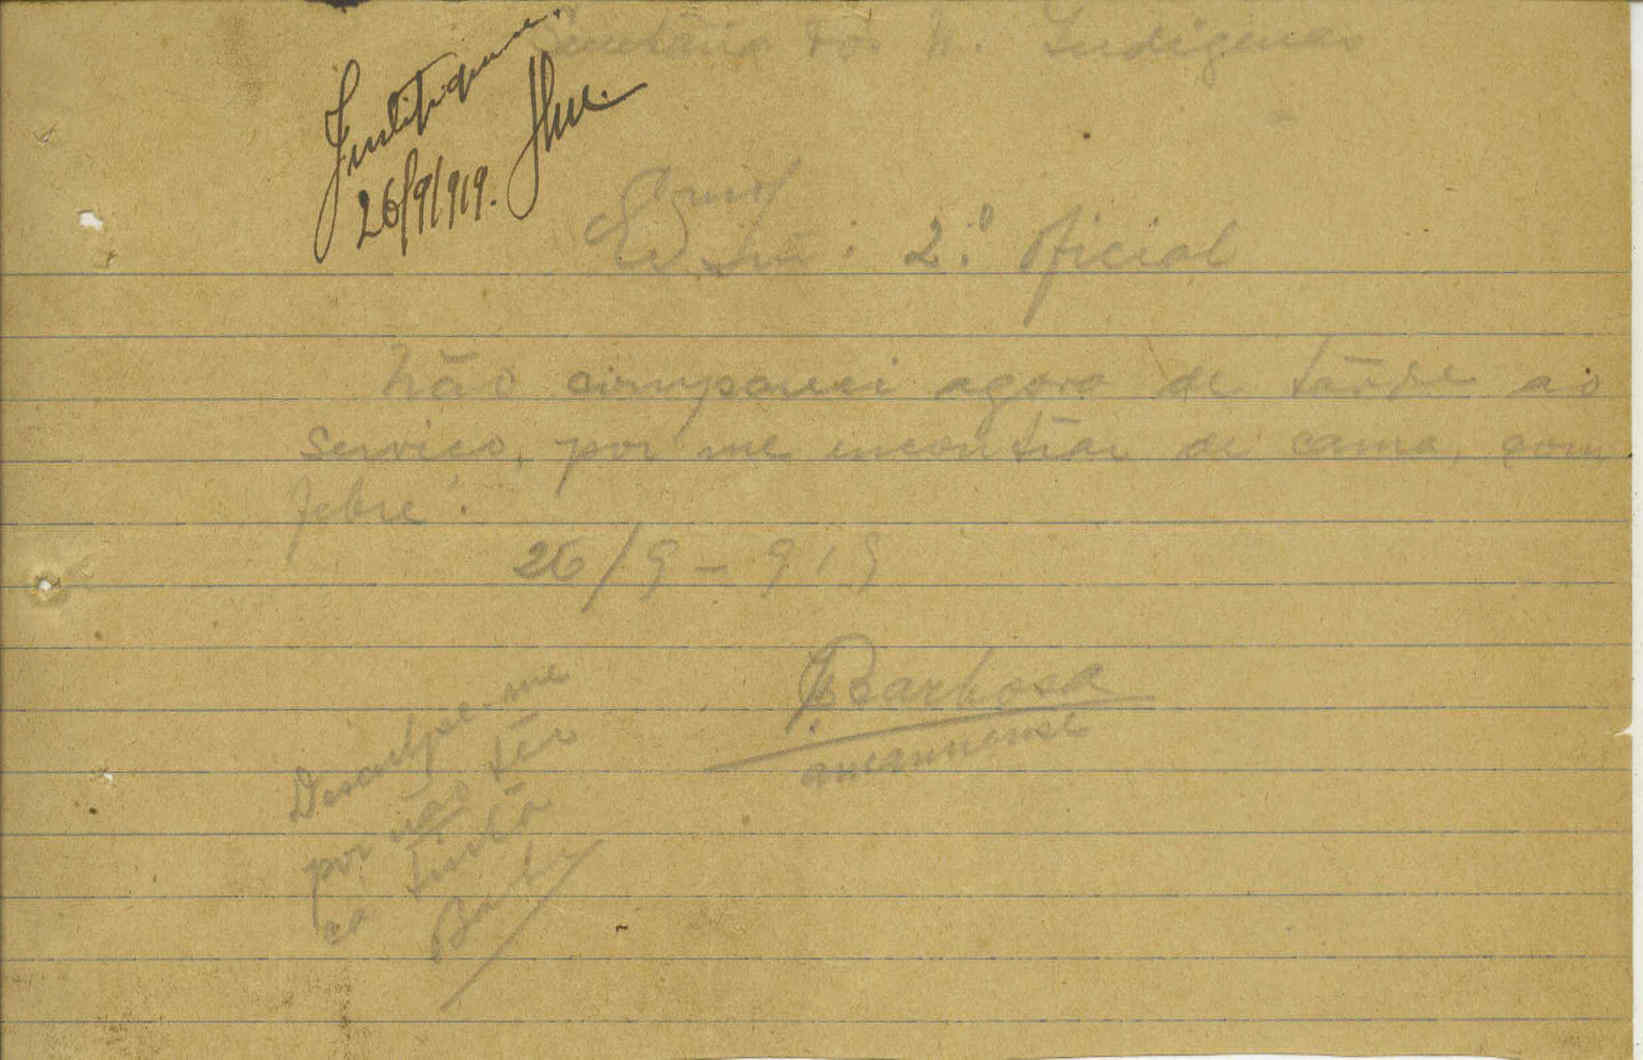 Secretaria dos N. Indigenas
Justifique-se.
26/9/919.
Exmo
Snr. 2.º Oficial
Não compareci agora de tarde ao
serviço, por me encontrar de cama, com
febre.
26/9-919
Barbosa
amanuense
Desculpe-me
por não ter
cá tinta
Barbosa